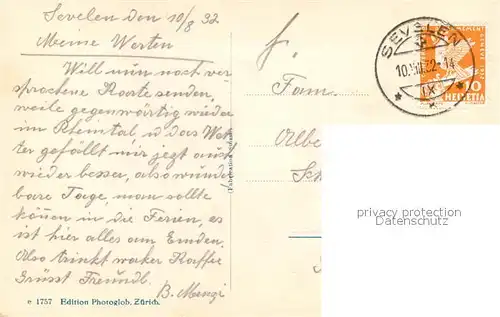 Sevelen den 10/8 32
Meine Werten
Will nun noch ver
sprochene Kaarte senden,
weile gegenwärtig wieder
im Rheintal u das Wet
ter gefällt mir jezt auch
wieder besser, also wunder
bare Tage, man sollte
können in die Ferien, es
ist hier alles am Emden.
Also trinkt waker Kaffe
Grüsst Freundl.
B. Menzi
e 1757 Edition Photoglob, Zürich.
f.
Fam.
Albe
Sch
SEVELEN
10.VIII.32-14
IX
HELVETIA
10
privacy protection
Datenschutz